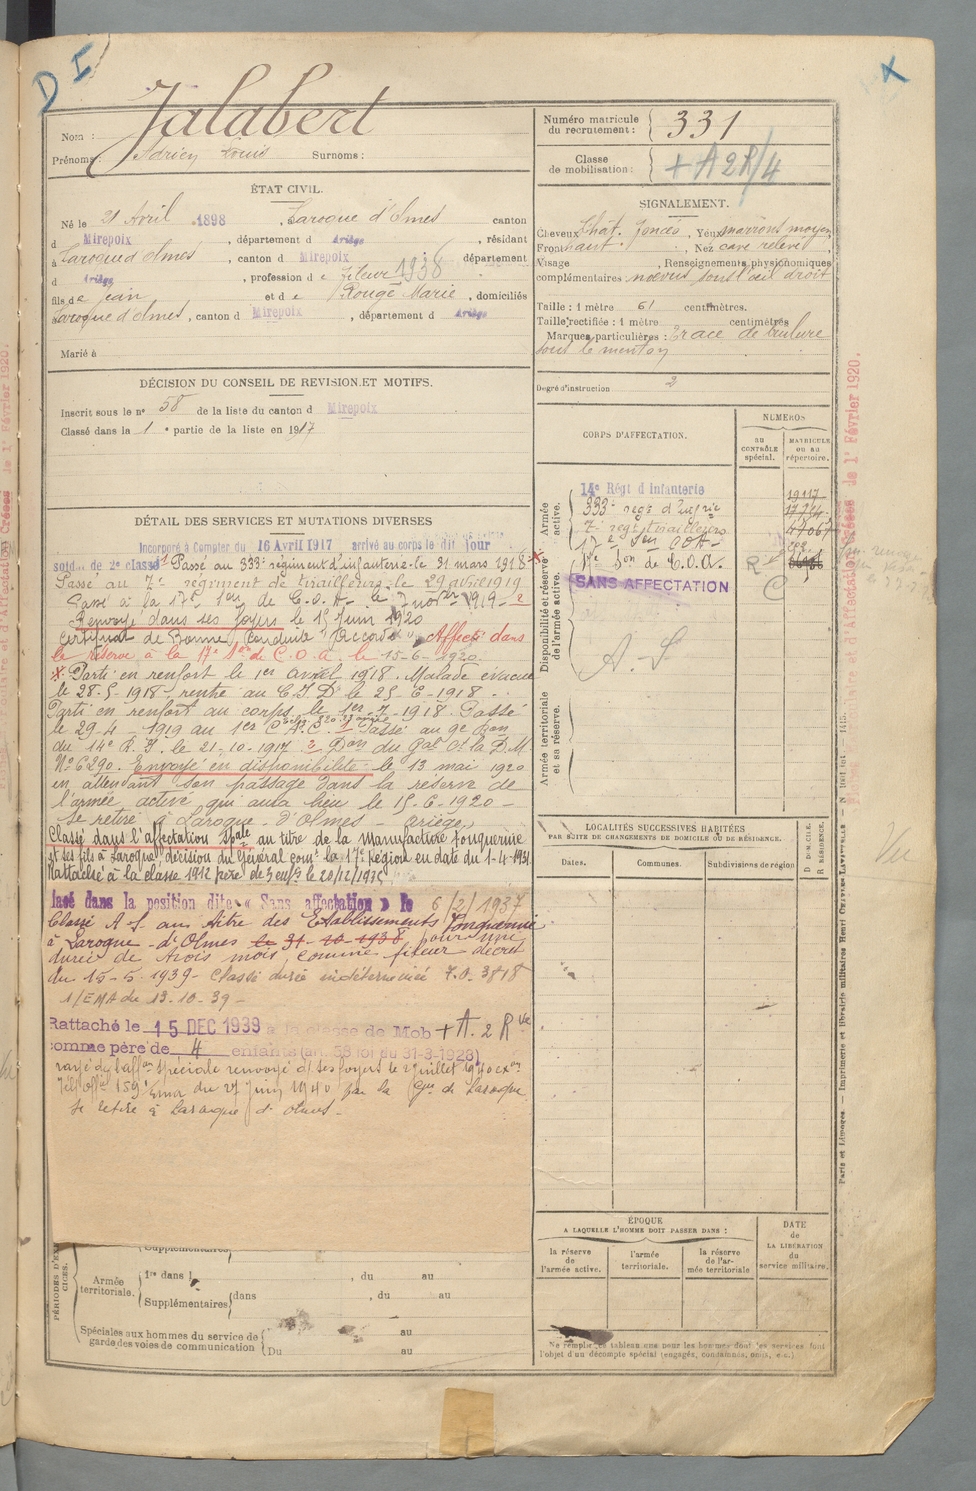 D I
X
Nom : Jalabert
Prénoms : Adrien Louis Surnoms :
Numéro matricule du recrutement : 331
Classe de mobilisation : + A 2R/4
ÉTAT CIVIL.
Né le 21 Avril 1898, à Laroque d'Olmes canton
d Mirepoix, département d Ariège, résidant
à Laroque d'olmes, canton d Mirepoix département
d Ariège, profession de fileur 1936
fils de Jean et de Rouge Marie, domiciliés
Laroque d'olmes, canton d Mirepoix, département d Ariège
Marié à
DÉCISION DU CONSEIL DE REVISION ET MOTIFS.
Inscrit sous le no 58 de la liste du canton d Mirepoix
Classé dans la 1e partie de la liste en 1917
DÉTAIL DES SERVICES ET MUTATIONS DIVERSES
Incorporé à Compter du 16 Avril 1917 arrivé au corps le dit jour
soldat de 2e classe Passé au 333e régiment d'infanterie le 31 mars 1918
Passé au 7e régiment de tirailleurs le 29 avril 1919
Passé à la 17e Son de C.O.A. le 7 novbre 1919 - 2
Renvoyé dans ses foyers le 15 Juin 1920
Certificat de Bonne Conduite Accordé Affecté dans
la réserve à la 17e Son de C.O.A. le 15-6-1920.
x Parti en renfort le 1er avril 1918. Malade évacué
le 28-5-1918, rentré au C.I.D. le 25-6-1918 -
Parti en renfort au corps le 1er-7-1918. Passé
le 29-4-1919 au 1er 1 Passé au 9e Bon
du 14e R.I. le 21-10-1917 2 Don du Gal Ct la D.M.
No 6290. Envoyé en disponibilité le 13 mai 1920
en attendant son passage dans la réserve de
l'armée active qui aura lieu le 15-6-1920 -
se retire à Laroque - d'Olmes - ariège,
Classé dans l'affectation Spale au titre de la Manufacture Fonquernie
et ses fils à Laroque décision du Général comt la 17e Région en date du 1-4-1931
Rattaché à la classe 1912 père de 3 enfts le 20/12/1935
lacé dans la position dite « Sans affectation » le 6/2/1937
Classé A S au titre des Etablissements Fonquernie
à Laroque - d'Olmes le 31-10-1938 pour une
durée de trois mois comme fileur décret
du 15-5-1939 - Classé durée indéterminée 7.0.3818
1/EMA du 13-10-39 -
Rattaché le 15 DEC 1939 à la classe de Mob + A. 2 Rve
comme père de 4 enfants (art. 58 loi du 31-3-1928)
rayé de l'affon spéciale renvoyé ds ses foyers le 2 juillet 1940 exon
Tél. offel 159 Emor du 27 Juin 1940 par la Gie de Laroque
Se retire à Laroque d'olmes -
PÉRIODES D'EXERCICES.
Supplémentaires
Armée territoriale. 1re dans l , du au
Supplémentaires dans , du au
Spéciales aux hommes du service de garde des voies de communication
au
Du au
SIGNALEMENT.
Cheveux Chât. foncés, Yeux marrons moyen,
Front haut, Nez cave relevé
Visage , Renseignements physionomiques
complémentaires noevus sous l'œil droit
Taille : 1 mètre 61 centimètres.
Taille rectifiée : 1 mètre centimètres
Marques particulières : Trace de brulure
sous le menton
Degré d'instruction 2
CORPS D'AFFECTATION.
NUMÉROS
au CONTRÔLE spécial.
MATRICULE ou au répertoire.
Armée active.
14e Régt d'Infanterie 19117
333e regt d'Infrie
7e regt tirailleurs
17e Son COA
Disponibilité et réserve de l'armée active.
17e Son de C.O.A. R
SANS AFFECTATION C
A. S
Armée territoriale et sa réserve.
LOCALITÉS SUCCESSIVES HABITÉES
PAR SUITE DE CHANGEMENTS DE DOMICILE OU DE RÉSIDENCE.
D DOMICILE.
R RÉSIDENCE.
Dates. Communes. Subdivisions de région
ÉPOQUE
A LAQUELLE L'HOMME DOIT PASSER DANS :
la réserve de l'armée active.
l'armée territoriale.
la réserve de l'armée territoriale
DATE de LA LIBÉRATION du service militaire.
Ne remplir ce tableau que pour les hommes dont les services font
l'objet d'un décompte spécial (engagés, condamnés, omis, etc.)
Paris et Limoges. — Imprimerie et librairie militaires Henri CHARLES-LAVAUZELLE
d'Affectation Créées le 1r Février 1920.
Vu